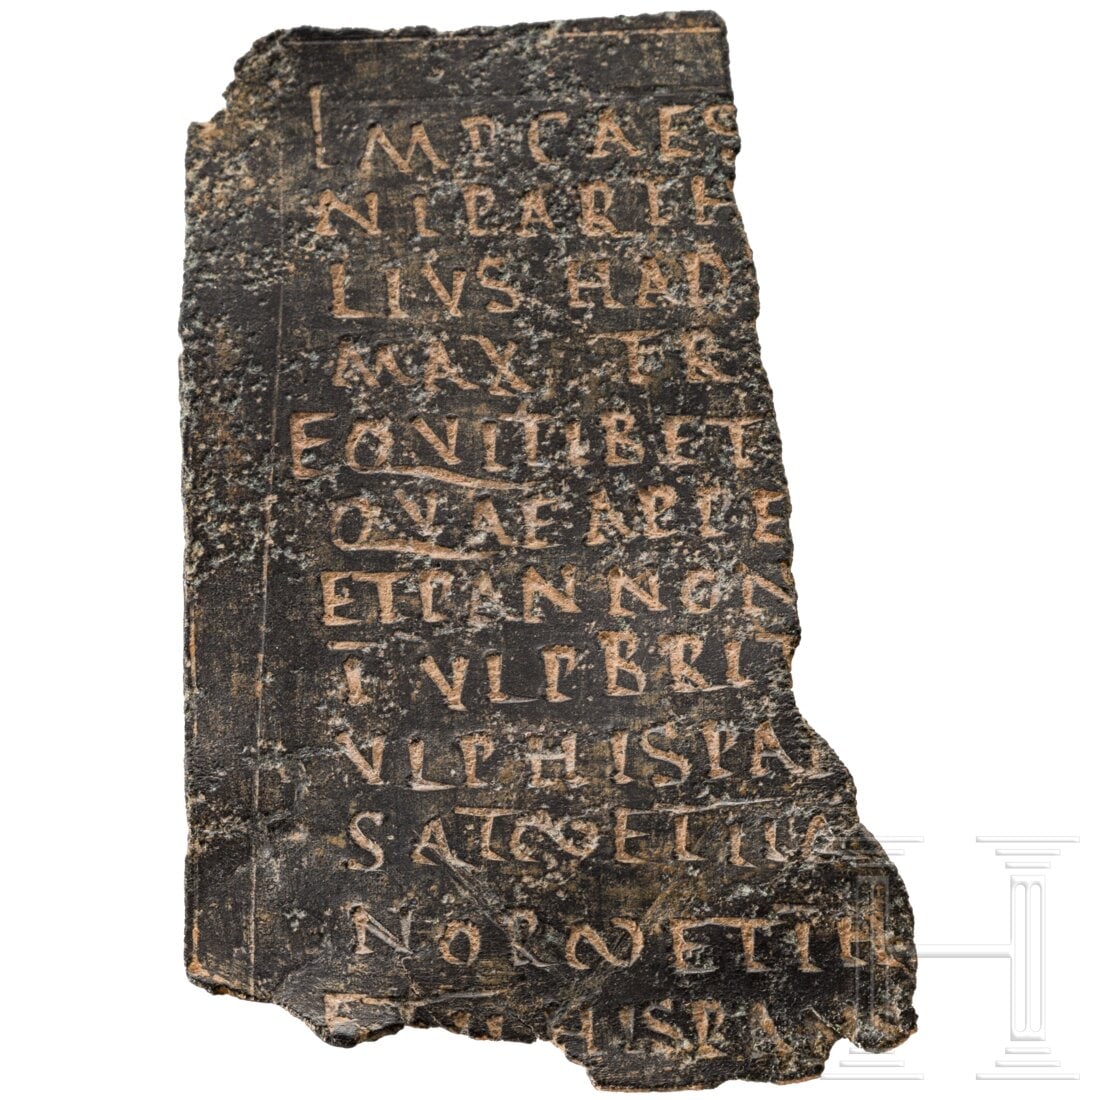 IMP CAES
NI PARTH
LIVS HAD
MAXI TR
EQVITIB ET
QVAE APPE
ET PANNON
I VLP BRIT
VLP HISPA
SAT ∞ ET III A
NOR ∞ ET I H
HISPAN